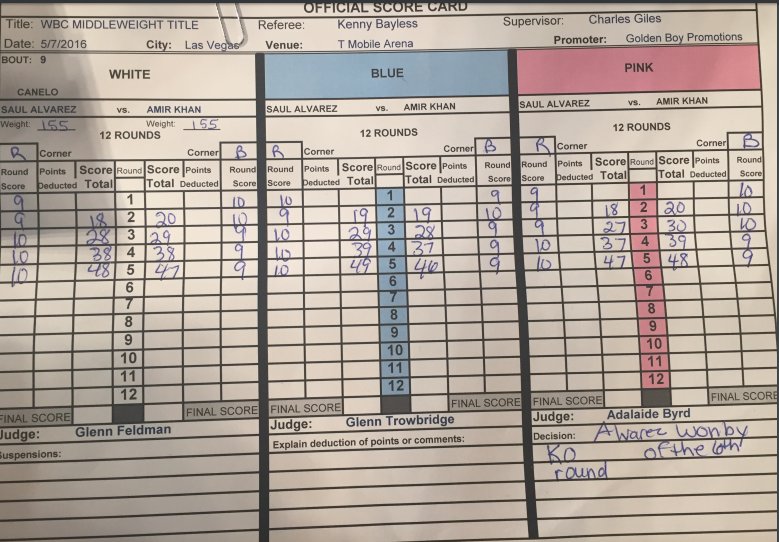 OFFICIAL SCORE CARD
Title: WBC MIDDLEWEIGHT TITLE Referee: Kenny Bayless Supervisor: Charles Giles
Date: 5/7/2016 City: Las Vegas Venue: T Mobile Arena Promoter: Golden Boy Promotions
BOUT: 9
WHITE BLUE PINK
CANELO
SAUL ALVAREZ vs. AMIR KHAN SAUL ALVAREZ vs. AMIR KHAN SAUL ALVAREZ vs. AMIR KHAN
Weight: 155 Weight: 155
12 ROUNDS 12 ROUNDS 12 ROUNDS
R Corner Corner B R Corner Corner B R Corner Corner B
Round Points Score Round Score Points Round Round Points Score Round Score Points Round Round Points Score Round Score Points Round
Score Deducted Total Total Deducted Score Score Deducted Total Total Deducted Score Score Deducted Total Total Deducted Score
9 1 10 10 1 9 9 1 10
9 18 2 20 10 9 19 2 19 10 9 18 2 20 10
10 28 3 29 9 10 29 3 28 9 9 27 3 30 10
10 38 4 38 9 10 39 4 37 9 10 37 4 39 9
10 48 5 47 9 10 49 5 46 9 10 47 5 48 9
6 6 6
7 7 7
8 8 8
9 9 9
10 10 10
11 11 11
12 12 12
FINAL SCORE FINAL SCORE FINAL SCORE FINAL SCORE FINAL SCORE FINAL SCORE
Judge: Glenn Feldman Judge: Glenn Trowbridge Judge: Adalaide Byrd
Suspensions: Explain deduction of points or comments: Decision: Alvarez won by
KO of the 6th
round